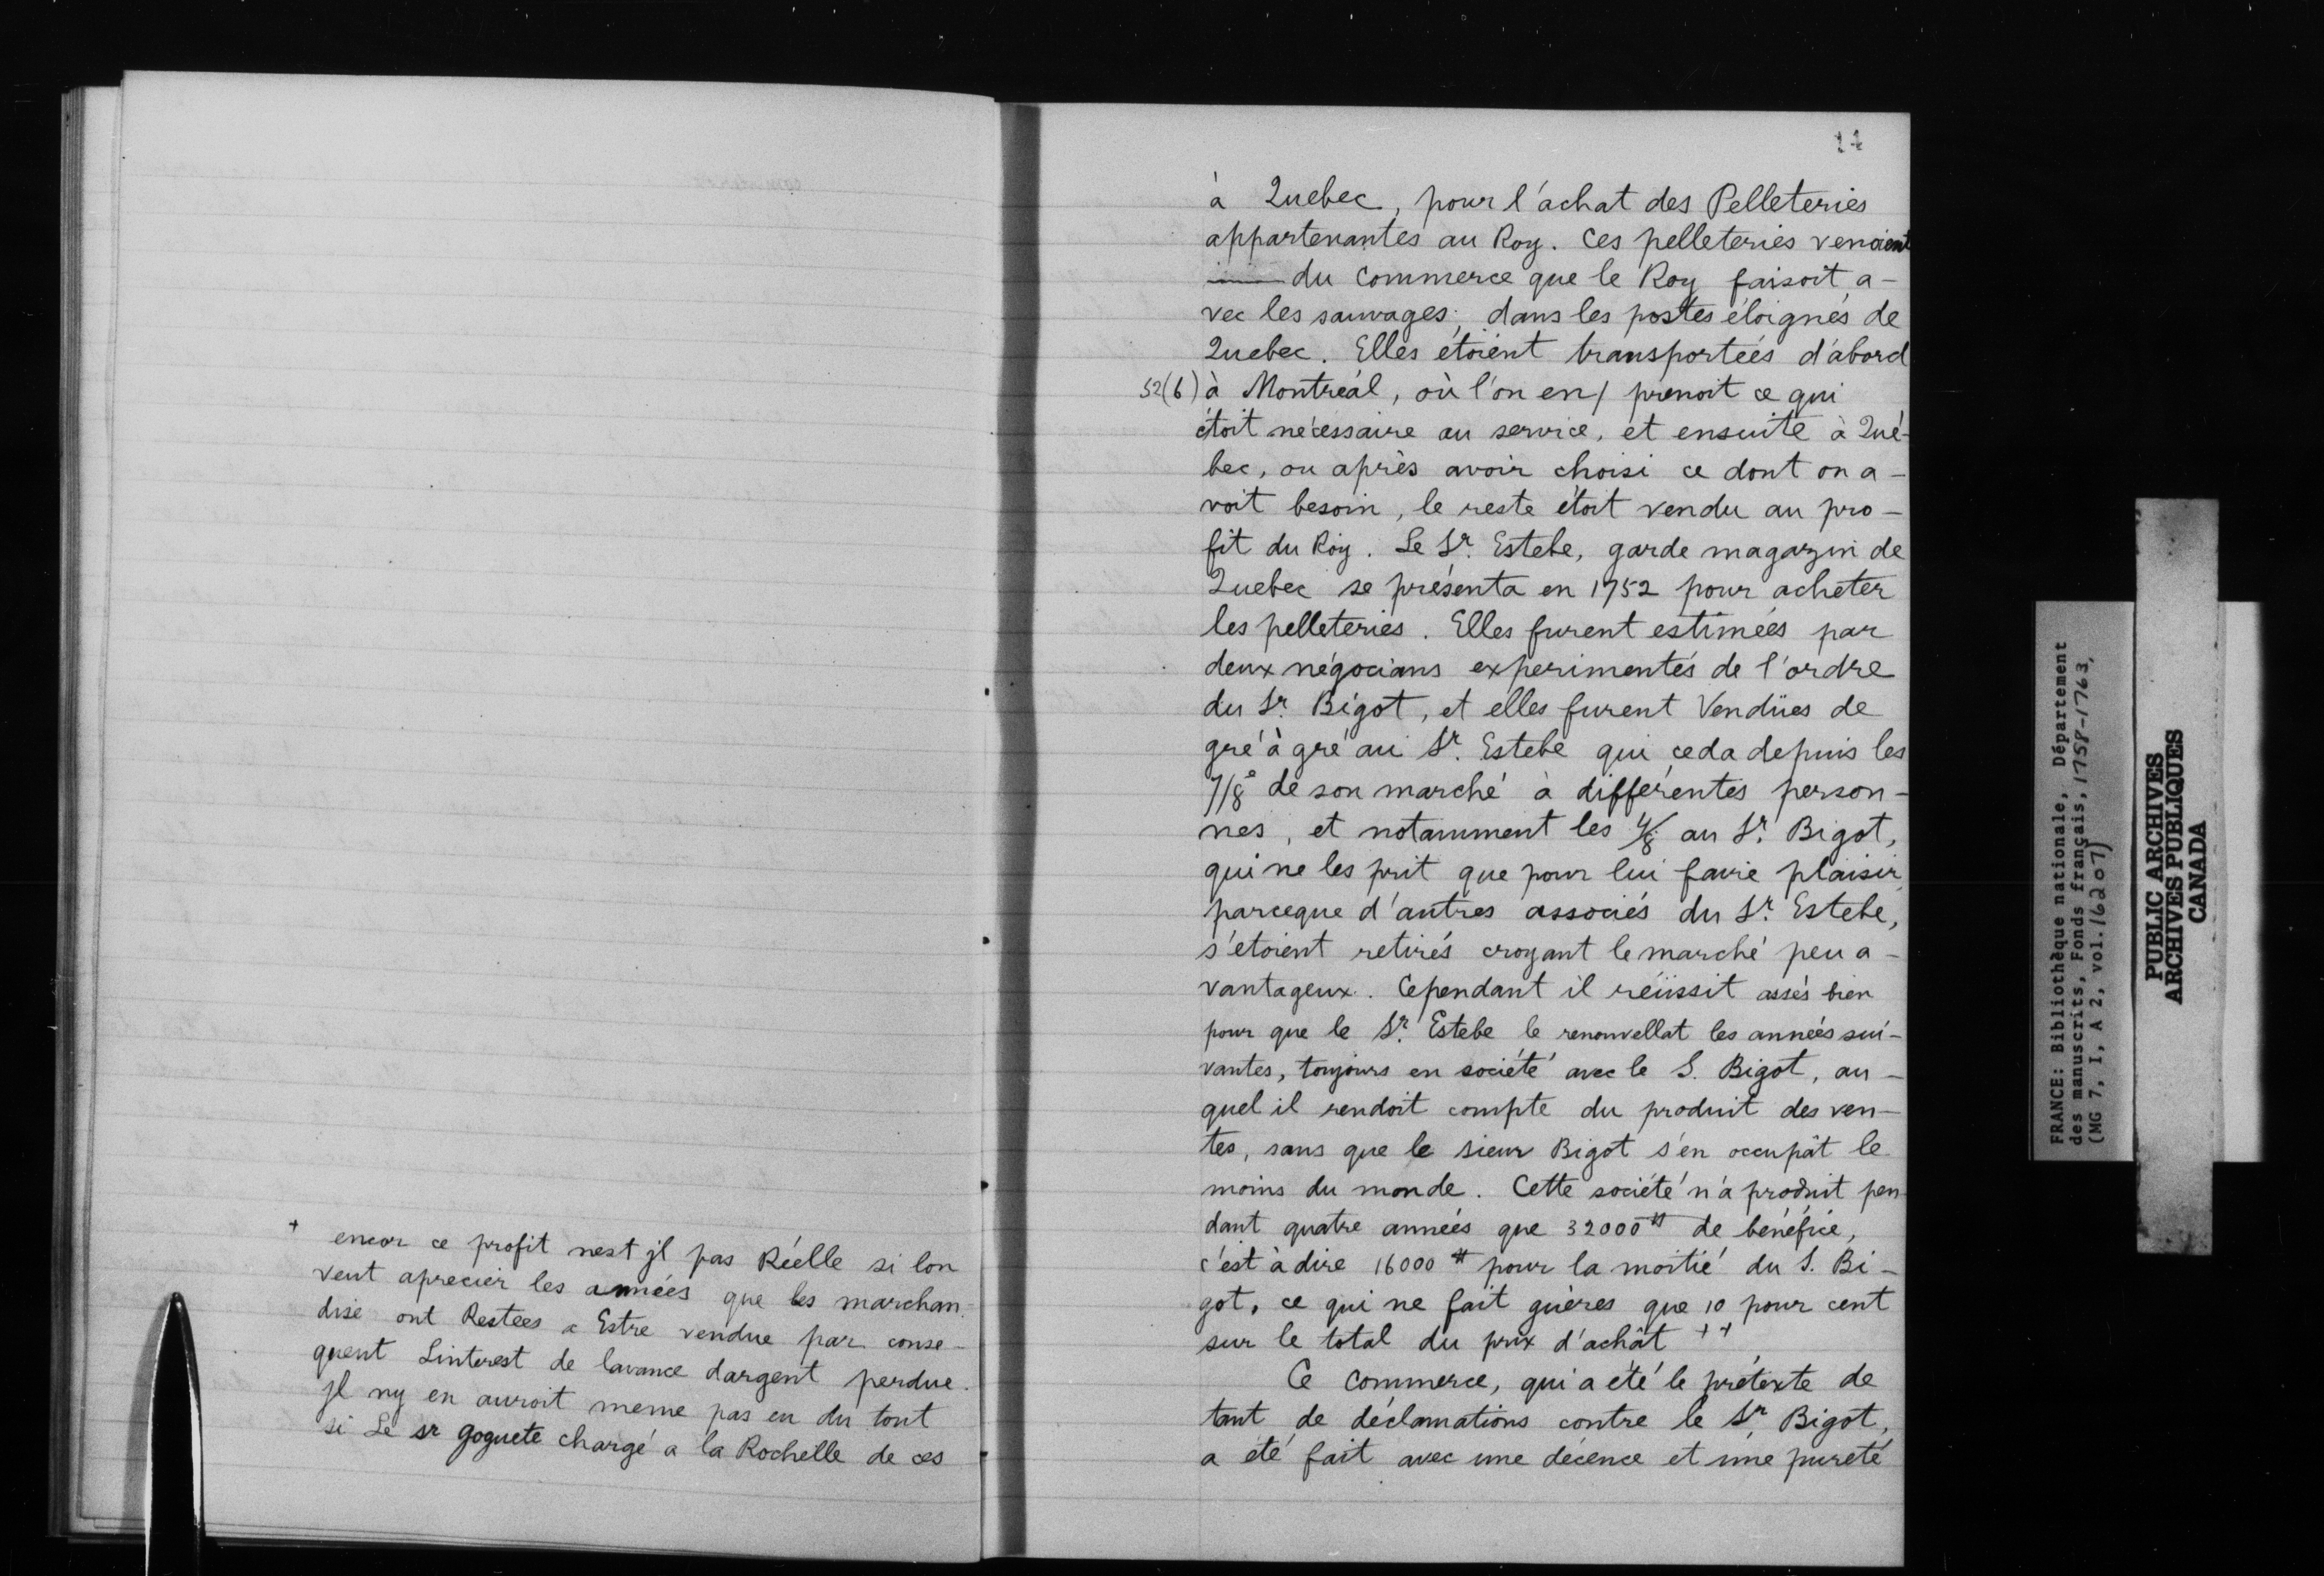 + encor ce profit nest jl pas Réelle si lon
veut aprecier les années que les marchan-
dise ont Restees a Estre vendue par conse-
quent Linterest de lavance dargent perdue.
Jl ny en auroit meme pas eu du tout
si Le sr goguete chargé a la Rochelle de ces
à Quebec, pour l'achat des Pelleteries
appartenantes au Roy. Ces pelleteries venoient
du Commerce que le Roy faisoit a-
vec les sauvages, dans les postes éloignés de
Quebec. Elles étoient transportées d'abord
52(b) à Montréal, où l'on en/ prenoit ce qui
étoit nécessaire au service, et ensuite à Qué-
bec, ou après avoir choisi ce dont on a-
voit besoin, le reste étoit vendu au pro-
fit du Roy. Le Sr. Estebe, garde magazin de
Quebec se présenta en 1752 pour acheter
les pelleteries. Elles furent estimées par
deux négocians experimentés de l'ordre
du Sr. Bigot, et elles furent Vendües de
gré à gré au Sr. Estebe qui ceda depuis les
7/8e de son marché à différentes person-
nes, et notamment les 4/8 au Sr. Bigot,
qui ne les prit que pour lui faire plaisir,
parceque d'autres associés du Sr. Estebe,
s'étoient retirés croyant le marché peu a-
vantageux. Cependant il réüssit assés bien
pour que le Sr. Estebe le renouvellat les années sui-
vantes, toujours en société avec le S. Bigot, au-
quel il rendoit compte du produit des ven-
tes, sans que le sieur Bigot s'en occupât le
moins du monde. Cette société n'a produit pen-
dant quatre années que 32000 ₶ de bénéfice,
c'est à dire 16000 ₶ pour la moitié du S. Bi-
got, ce qui ne fait guères que 10 pour cent
sur le total du prix d'achât ++
Ce Commerce, qui a été le prétexte de
tant de déclamations contre le Sr. Bigot,
a été fait avec une décence et une pureté
FRANCE: Bibliothèque nationale, Département
des manuscrits, Fonds français, 1758-1763,
(MG 7, I, A 2, vol. 16207)
PUBLIC ARCHIVES
ARCHIVES PUBLIQUES
CANADA